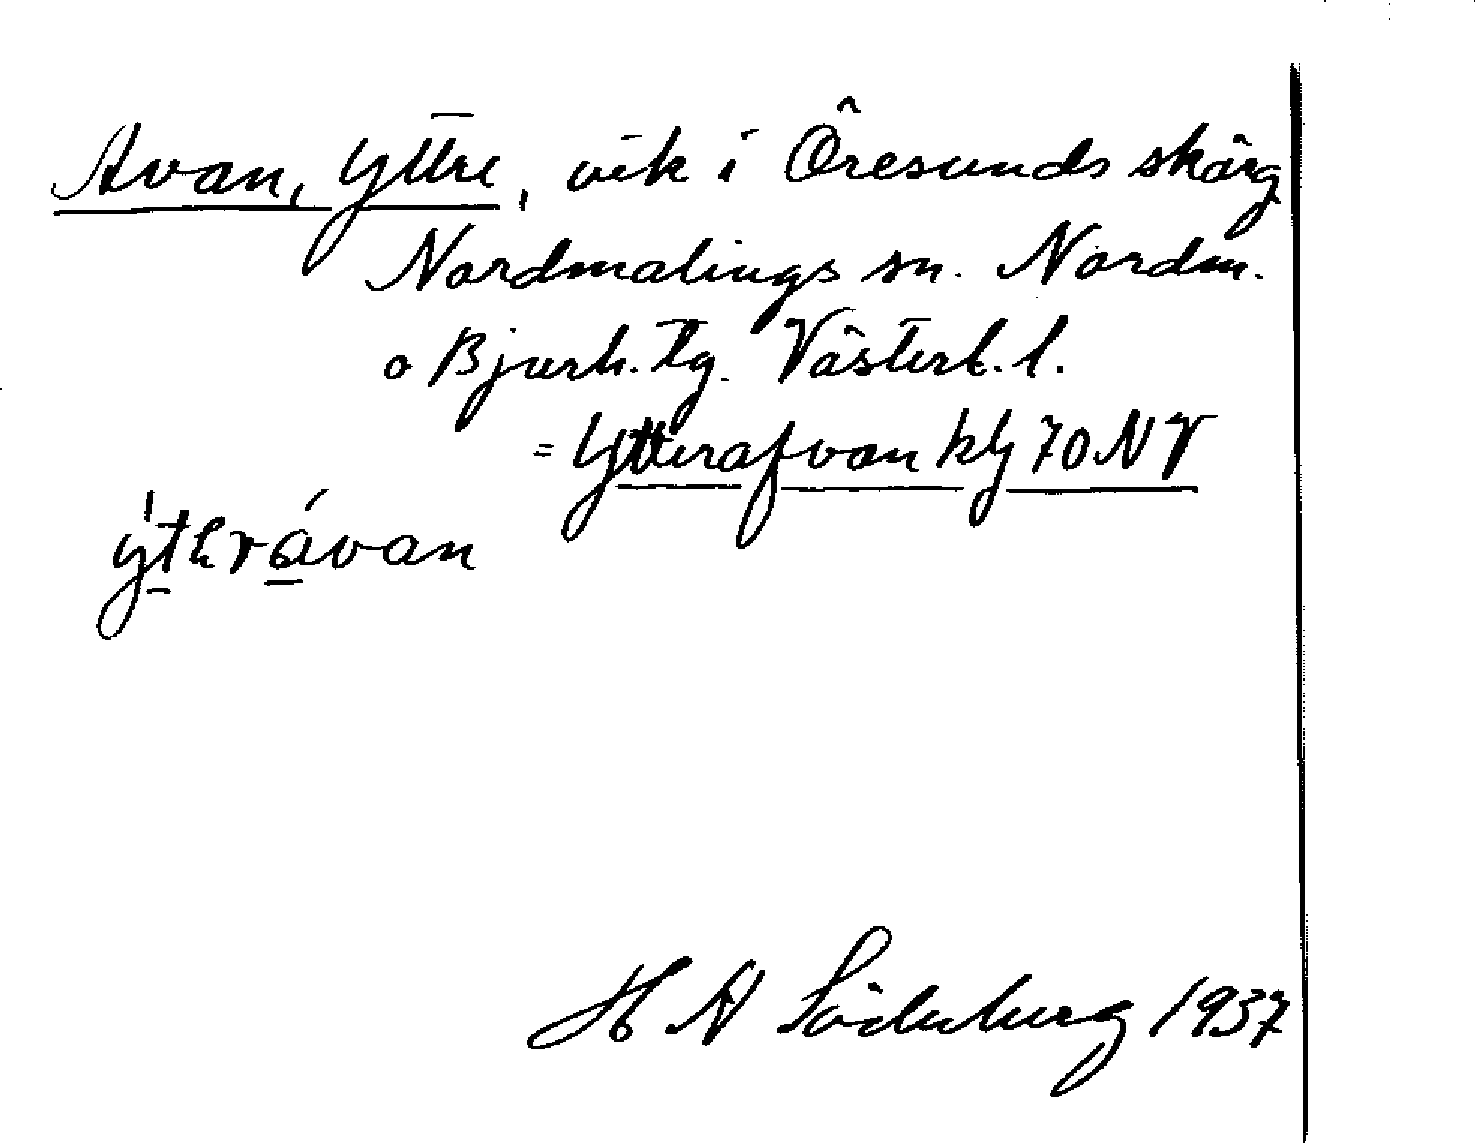 Avan, Yttre, vik i Öresunds skärg
Nordmalings sn. Nordm.
o Bjurh. tg. Västerb. l.
= Ytterafvan kbl 70 NV
ýthrávan
H A Söderberg 1937